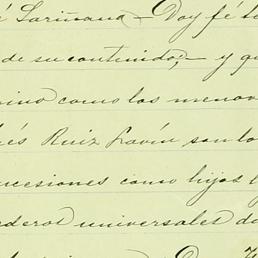 é Sariñana - Doy fé
de su contenido; - y q
ino como los menor
és Ruiz Lavín son lo
cesiones como hijos l
ederos universales d